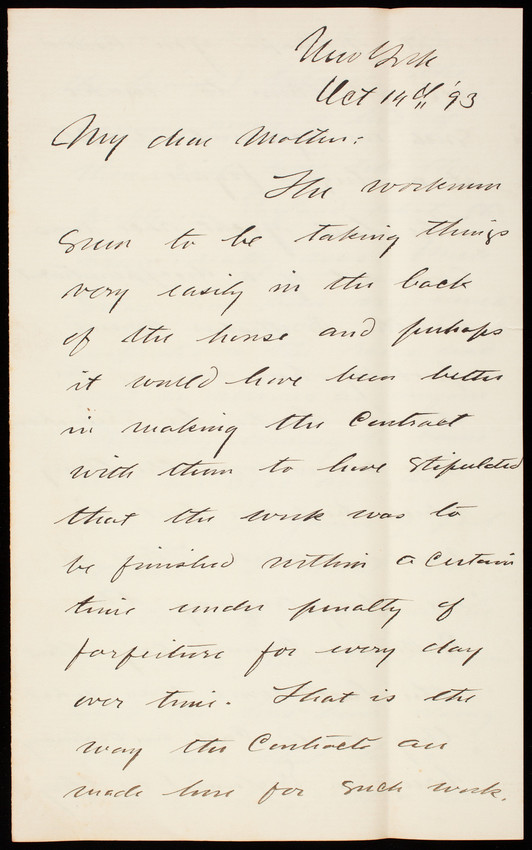 New York
Oct 14th '93
My dear Mother:
The workmen
seem to be taking things
very easily in the back
of the house and perhaps
it would have been better
in making the Contract
with them to have stipulated
that the work was to
be finished within a certain
time under penalty of
forfeiture for every day
over time. That is the
way the Contracts are
made here for such work.